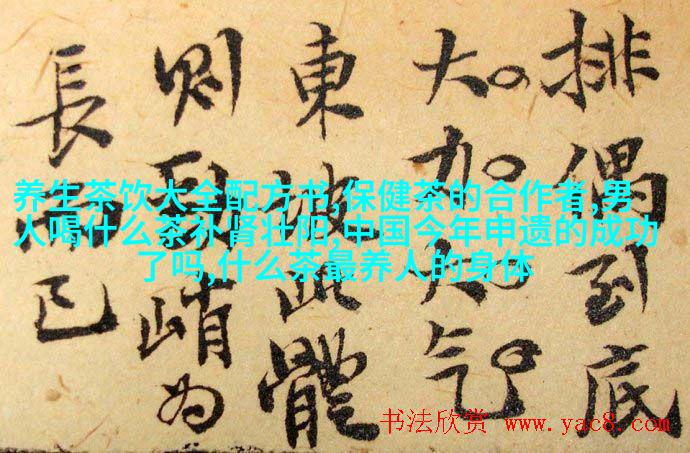 排偶到底
大气
東坡此體
则峭为
長已
养生茶饮大全配方书,保健茶的合作者,男
人喝什么茶补肾壮阳,中国今年申遗的成功
了吗,什么茶最养人的身体
书法欣赏 www.yac8.com